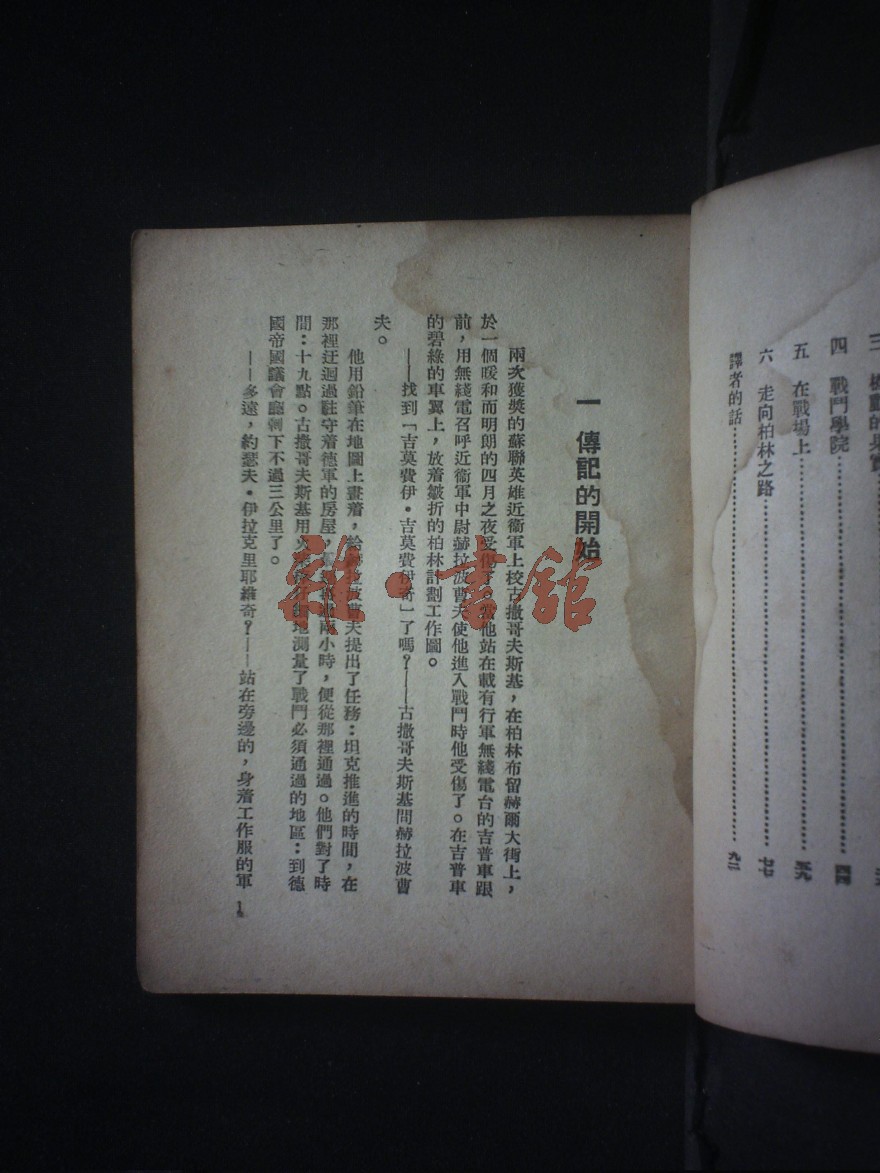 四 戰鬥學院 四四
五 在戰場上 五九
六 走向柏林之路 七七
譯者的話 九二
一 傳記的開始
兩次獲獎的蘇聯英雄近衞軍上校古撒哥夫斯基，在柏林布留赫爾大街上，
於一個暖和而明朗的四月之夜受傷了。當他站在載有行軍無綫電台的吉普車跟
前，用無綫電召呼近衞軍中尉赫拉波曹夫使他進入戰鬥時他受傷了。在吉普車
的碧綠的車翼上，放着皺折的柏林計劃工作圖。
——找到「吉莫費伊·吉莫費伊奇」了嗎？——古撒哥夫斯基問赫拉波曹
夫。
他用鉛筆在地圖上畫着，給赫拉波曹夫提出了任務：坦克推進的時間，在
那裡迂迴過駐守着德軍的房屋，小時，便從那裡通過。他們對了時
間：十九點。古撒哥夫斯基用地測量了戰鬥必須通過的地區：到德
國帝國議會廳剩下不過三公里了。
——多遠，約瑟夫·伊拉克里耶維奇？——站在旁邊的，身着工作服的軍
1
雜·書館